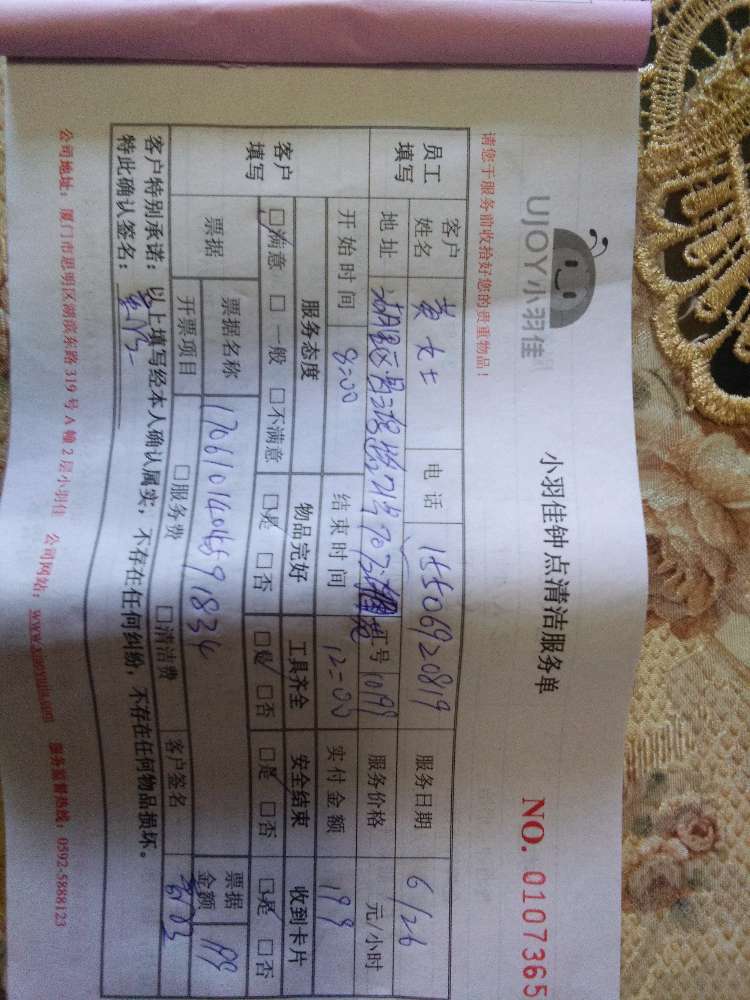 UJOY小羽佳
小羽佳钟点清洁服务单
NO. 0107365
请您于服务前收拾好您的贵重物品！
员工填写 客户姓名 黄女士 电话 15506920819 服务日期 6/26
地址 湖里区 工号 1099 服务价格 元/小时
开始时间 8:00 结束时间 12:00 实付金额 199
客户填写 服务态度 物品完好 工具齐全 安全结束 收到卡片
□满意 □一般 □不满意 □是 □否 □是 □否 □是 □否 □是 □否
票据 票据名称 票据金额 199
开票项目 □服务费 □清洁费 客户签名
客户特别承诺：以上填写经本人确认属实，不存在任何纠纷，不存在任何物品损坏。
特此确认签名：
公司地址：厦门市思明区湖滨东路319号A幢2层小羽佳 公司网站：www.xiaoyujia.com 服务监督热线：0592-5888123